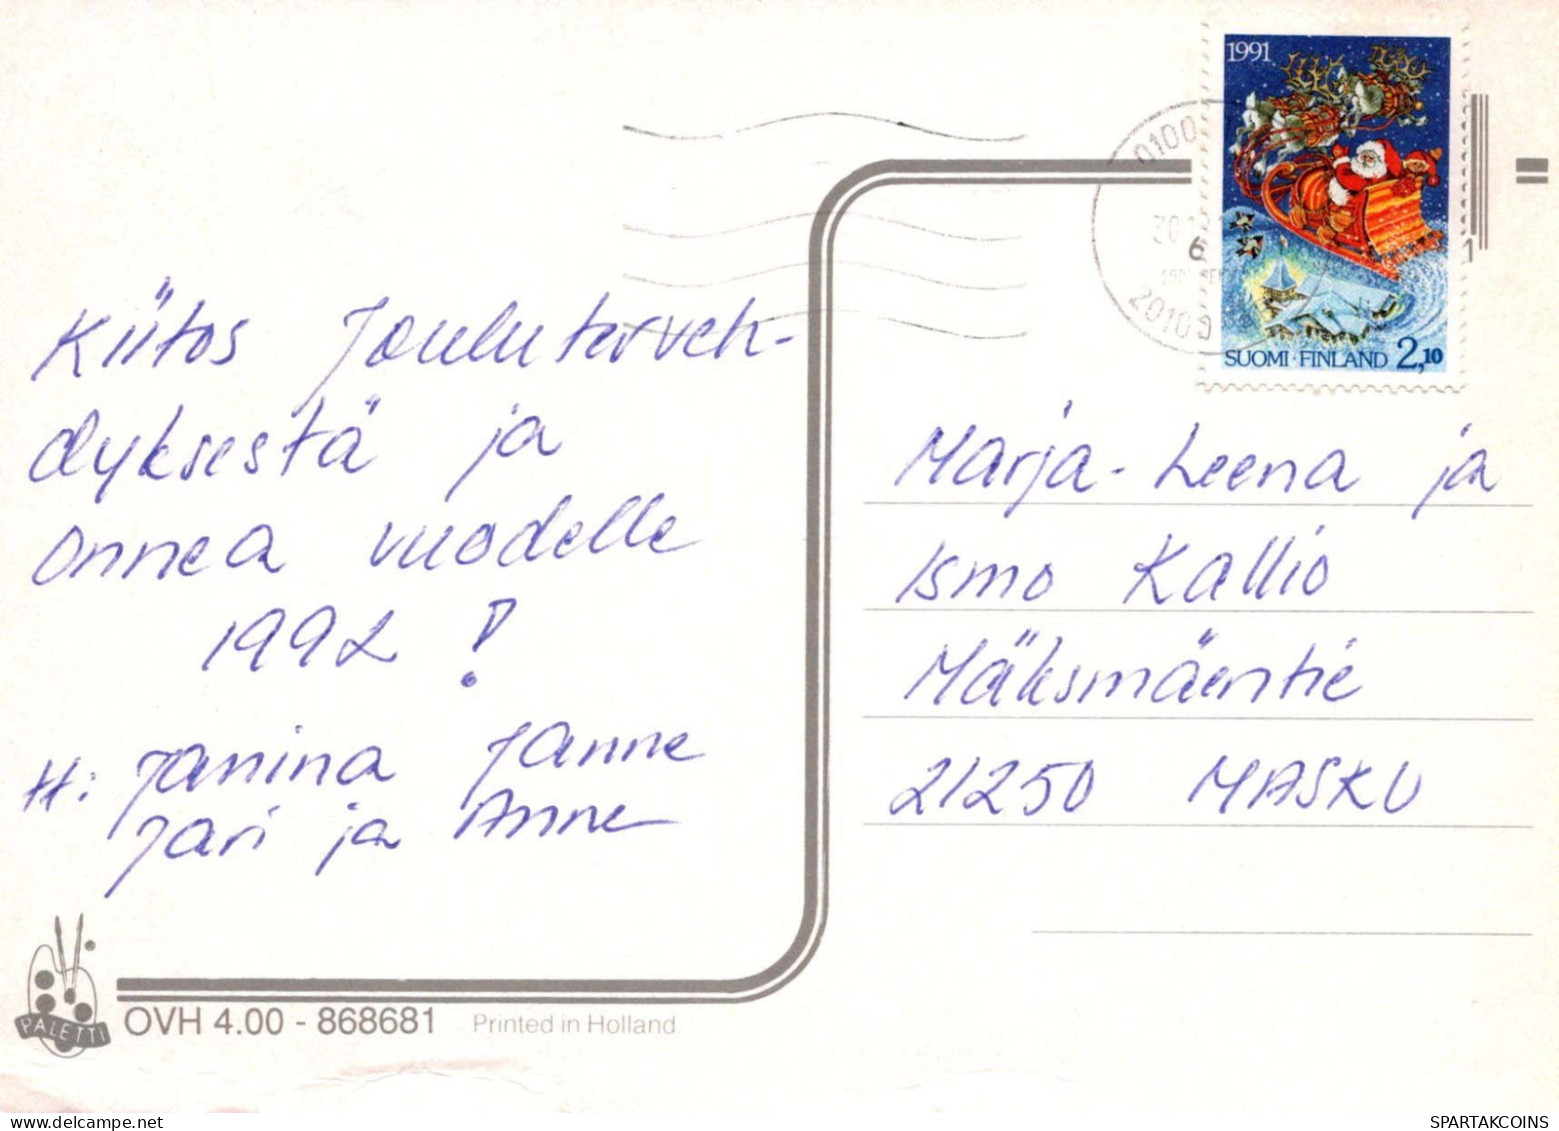 1991
SUOMI · FINLAND 2,10
Kiitos Jouluterveh-
dyksestä ja
Onnea vuodelle
1992 !
H: Janina Janne
Jari ja Anne
Marja-Leena ja
Ismo Kallio
Mäksmäentie
21250 MASKU
PALETTI
OVH 4.00 - 868681 Printed in Holland
SPARTAKCOINS